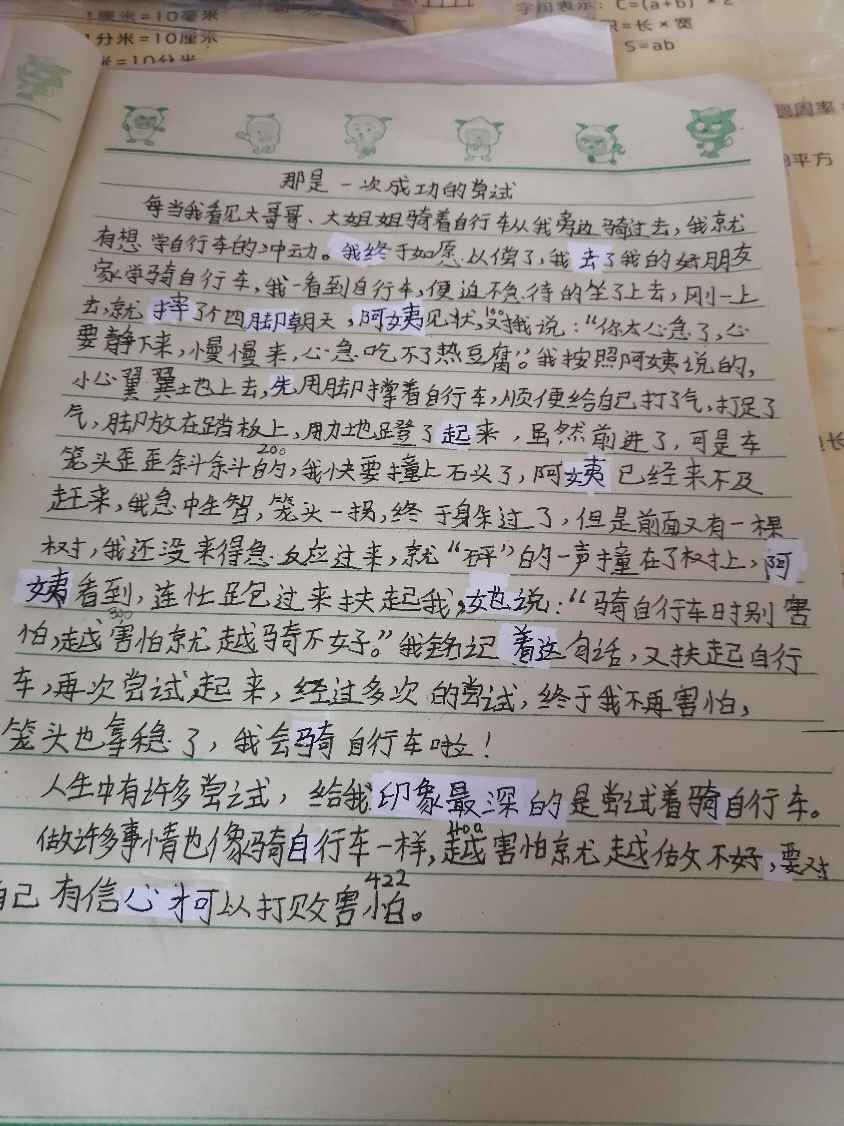 1厘米=10毫米
1分米=10厘米
米=10分米
字母表示：C=(a+b)×2
=长×宽
S=ab
圆周率
平方
那是一次成功的尝试
每当我看见大哥哥、大姐姐骑着自行车从我旁边骑过去，我就
有想学自行车的冲动。我终于如愿以偿了，我去了我的好朋友
家学骑自行车，我一看到自行车，便迫不急待的坐了上去，刚一上
去，就摔了个四脚朝天，阿姨见状，对我说：“你太心急了，心
100
要静下来，慢慢来，心急吃不了热豆腐”。我按照阿姨说的，
小心翼翼地上去，先用脚撑着自行车，顺便给自己打了气，打足了
气，脚放在踏板上，用力地蹬了起来，虽然前进了，可是车
200
笼头歪歪斜斜的，我快要撞上石头了，阿姨已经来不及
赶来，我急中生智，笼头一拐，终于躲过了，但是前面又有一棵
树，我还没来得急反应过来，就“砰”的一声撞在了树上，阿
姨看到，连忙跑过来扶起我，她说：“骑自行车时别害
300
怕，越害怕就越骑不好。”我铭记着这句话，又扶起自行
车，再次尝试起来，经过多次的尝试，终于我不再害怕，
笼头也拿稳了，我会骑自行车啦！
人生中有许多尝试，给我印象最深的是尝试着骑自行车。
400
做许多事情也像骑自行车一样，越害怕就越做不好，要对
422
自己有信心才可以打败害怕。